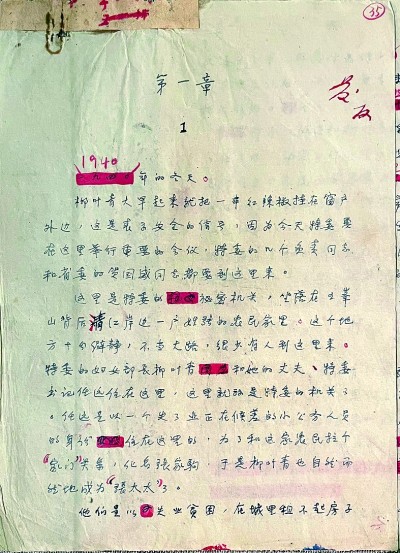 35
第一章
发反
1
1940
一九四〇年的冬天。
柳叶青大早起来就把一串红辣椒挂在窗户
外边，这是表示安全的信号，因为今天特委要
在这里举行重要的会议，特委的几个负责同志
和省委的贺国威同志都要到这里来。
这里是特委的秘密机关，坐落在五峰
山背后清江岸边一户姓张的农民家里。这个地
方十分僻静，不当大路，很少有人到这里来。
特委的妇女部长柳叶青和她的丈夫、特委
书记任远住在这里，这里就成了特委的机关了
。任远是以一个失了业正在候差的小公务人员
的身份住在这里的，为了和这家农民拉个
“家门”关系，化名张敬购，于是柳叶青也自然而
然地成为“张太太”了。
他们是以失业贫困，在城里租不起房子